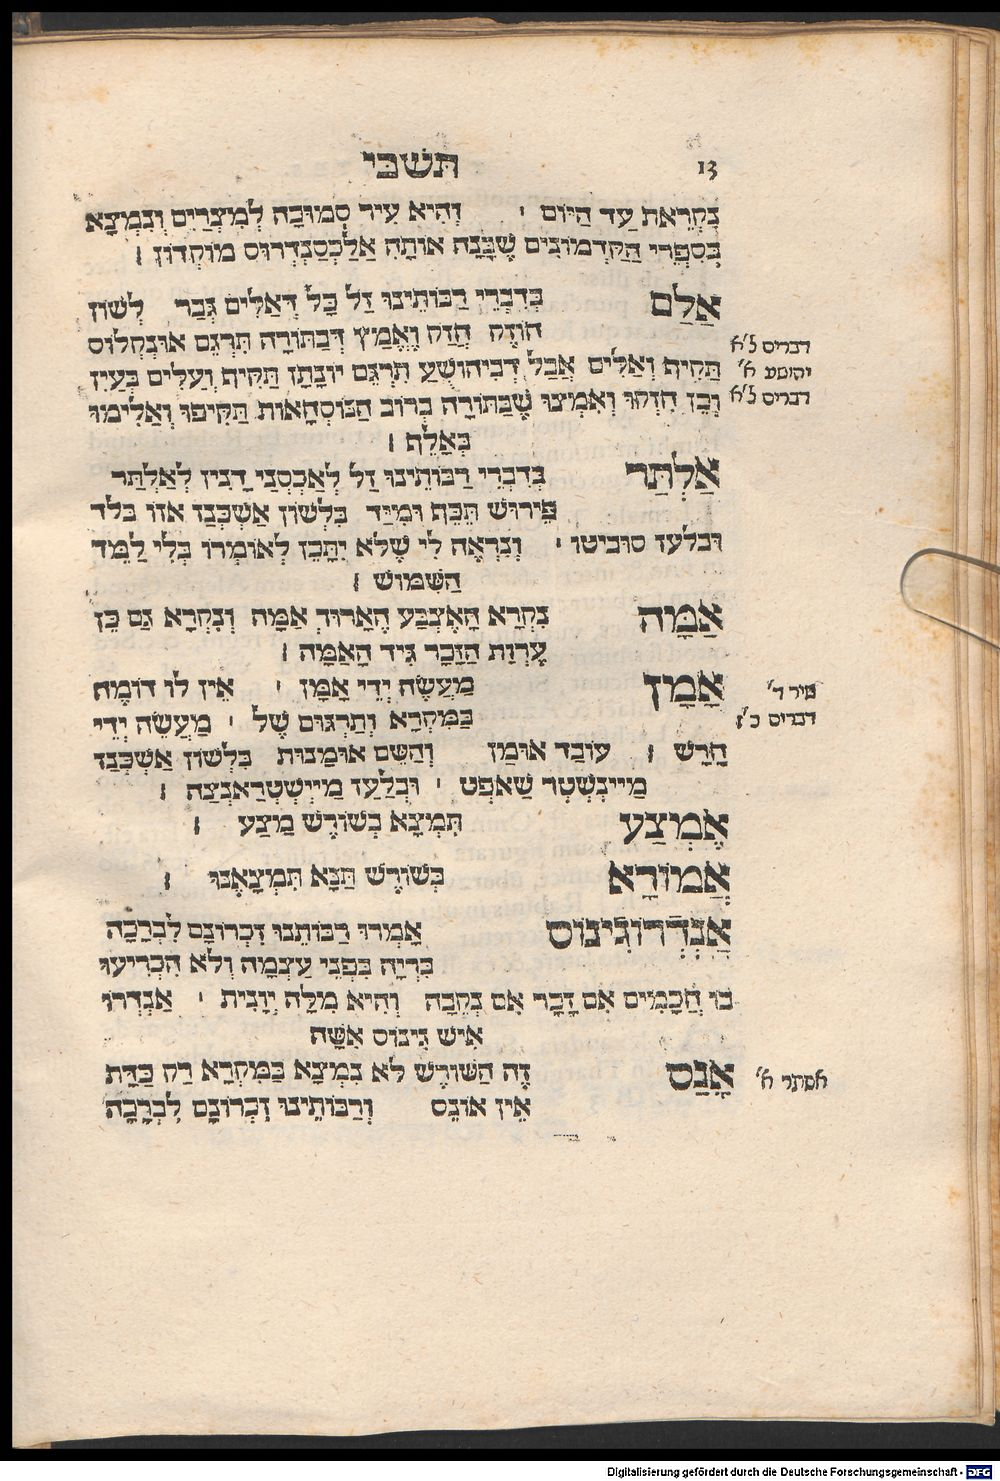 13 תשבי
נִקְרֵאת עַד הַיּוֹם ׃ וְהִיא עִיר סְמוּכָה לְמִצְרַיִם וְנִמְצָא
בְּסִפְרֵי הַקַּדְמוֹנִים שֶׁבָּנָה אוֹתָהּ אַלֶכְסַנְדְרוּס מוֹקְדוֹן ׃
אָלַם בְּדִבְרֵי רַבּוֹתֵינוּ זַל כָּל דְּאַלִים גְּבַר לְשׁוֹן
חוֹזֶק חֲזַק וֶאֱמַץ דְּבַתּוֹרָה תִּרְגֵּם אוּנְקְלוּס
דברים ל״א
תַּקִּיף וְאַלִּים אֲבָל דְּבִיהוֹשֻׁעַ תִּרְגֵּם יוֹנָתָן תַּקִּיף וְעַלִּים בְּעַיִן
יהושע א׳
וְכֵן חִזְקוּ וְאִמְצוּ שֶׁבַּתּוֹרָה בְּרוֹב הַנּוּסְחָאוֹת תַּקִּיפוּ וְאַלִּימוּ
דברים ל״א
בְּאָלֶף ׃
אַלְתַּר בְּדִבְרֵי רַבּוֹתֵינוּ זַל לְאַכְסְנַי דָּנִין לְאַלְתַּר
פֵּירוּשׁ תֵּכֶף וּמִיַּד בִּלְשׁוֹן אַשְׁכְּנַז אזו בלד
וּבְלַעַז סוביטו ׃ וְנִרְאֶה לִי שֶׁלֹּא יִתָּכֵן לְאוֹמְרוֹ בְּלִי לַמֶּד
הַשִּׁמּוּשׁ ׃
אַמָּה נִקְרָא הָאֶצְבַּע הָאָרוּךְ אַמָּה וְנִקְרָא גַּם כֵּן
עֶרְוַת הַזָּכָר גִּיד הָאַמָּה ׃
אָמָן מַעֲשֵׂה יְדֵי אָמָּן ׃ אֵין לוֹ דּוֹמֶה
שיר ז׳
בַּמִּקְרָא וְתַרְגּוּם שֶׁל ׃ מַעֲשֵׂה יְדֵי
דברים כ״ז
חָרָשׁ ׃ עוֹבַד אוּמָן וְהַשֵּׁם אוּמָנוּת בִּלְשׁוֹן אַשְׁכְּנַז
מַיינְשְׁטֶר שַׁאפְט ׃ וּבְלַעַז מַיישְׁטְרַאנְצַה ׃
אֶמְצַע תִּמְצָא בְּשׁוֹרֶשׁ מַצַע ׃
אֲמוֹרָא בְּשׁוֹרֶשׁ תַּנָּא תִּמְצָאֶנּוּ ׃
אַנְדְּרוֹגִינוּס אָמְרוּ רַבּוֹתֵנוּ זִכְרוֹנָם לִבְרָכָה
בְּרִיָּה בִּפְנֵי עַצְמָהּ וְלֹא הִכְרִיעוּ
בּוֹ חֲכָמִים אִם זָכָר אִם נְקֵבָה וְהִיא מִלָּה יְוָנִית ׃ אַנְדְּרוֹ
אִישׁ גִּינוּס אִשָּׁה
אָנַס זֶה הַשּׁוֹרֶשׁ לֹא נִמְצָא בַּמִּקְרָא רַק כַּדָּת
אסתר א׳
אֵין אוֹנֵס וְרַבּוֹתֵינוּ זִכְרוֹנָם לִבְרָכָה
Digitalisierung gefördert durch die Deutsche Forschungsgemeinschaft - DFG